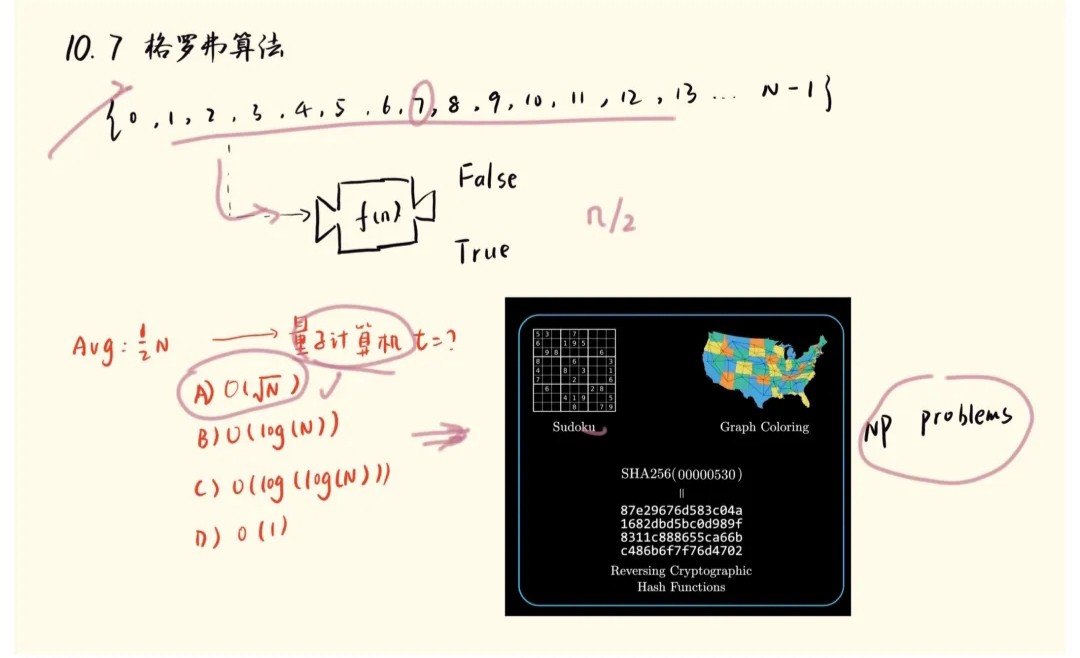 10.7 格罗弗算法
{0,1,2,3,4,5,6,7,8,9,10,11,12,13... N-1}
False
f(n)
n/2
True
Avg: 1/2 N → 量子计算机 t=?
A) O(√N)
B) O(log(N))
C) O(log(log(N)))
D) O(1)
5 3 7
6 1 9 5
9 8 6
8 6 3
4 8 3 1
7 2 6
6 2 8
4 1 9 5
8 7 9
Sudoku
Graph Coloring
NP problems
SHA256(00000530)
=
87e29676d583c04a
1682dbd5bc0d989f
8311c888655ca66b
c486b6f7f76d4702
Reversing Cryptographic
Hash Functions